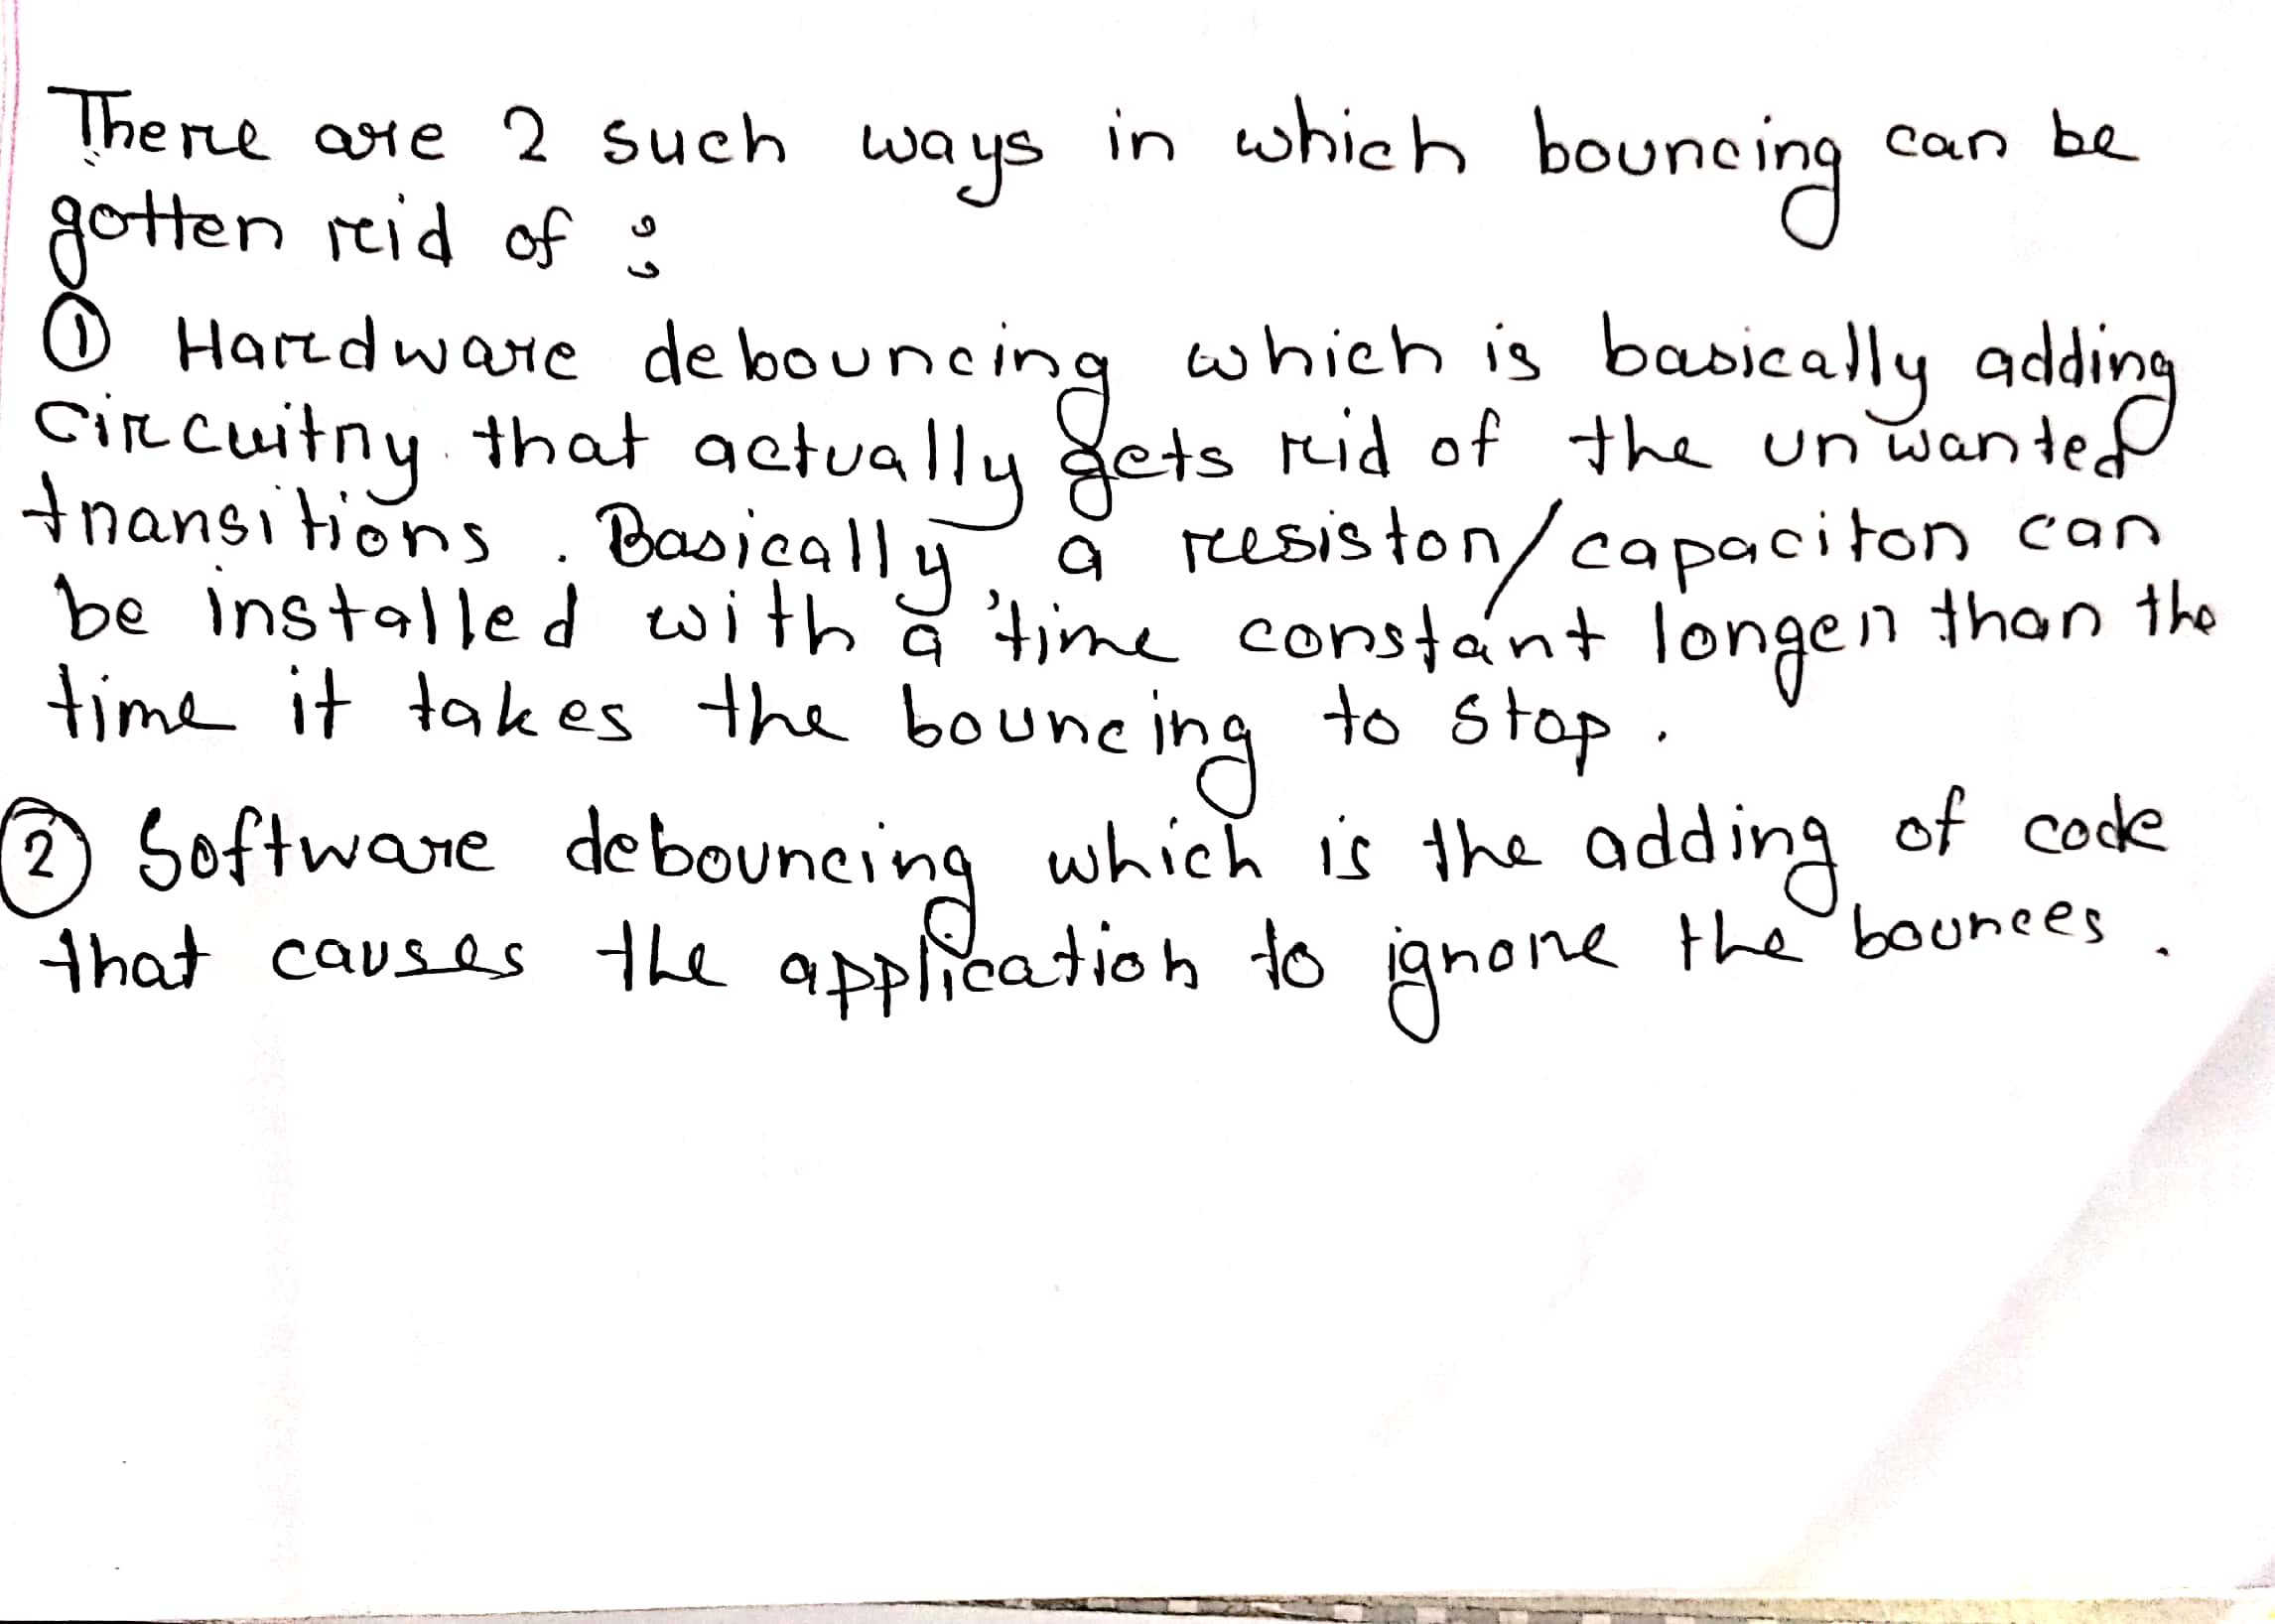 There are 2 such ways in which bouncing can be
gotten rid of :
① Hardware debouncing which is basically adding
circuitry that actually gets rid of the unwanted
transitions. Basically, a resistor/capacitor can
be installed with a time constant longer than the
time it takes the bouncing to stop.
② Software debouncing which is the adding of code
that causes the application to ignore the bounces.